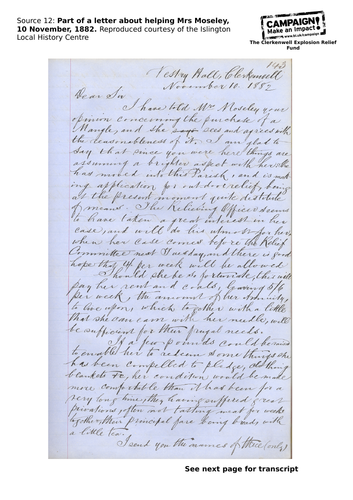 Source 12: Part of a letter about helping Mrs Moseley,
10 November, 1882. Reproduced courtesy of the Islington
Local History Centre
CAMPAIGN!
Make an Impact
The Clerkenwell Explosion Relief
Fund
Vestry Hall, Clerkenwell
November 10. 1882
Dear Sir
I have told Mrs Moseley your
opinion concerning the purchase of a
Mangle, and she sees and agrees with
the reasonableness of it. I am glad to
say that since you were here things are
assuming a brighter aspect with her. She
has moved into this Parish, and is mak
ing application for outdoor relief, being
at the present moment quite destitute
of means. The Relieving Officer seems
to have taken a great interest in her
case, and will do his utmost for her
when her case comes before the Relief
Committee next Tuesday, and there is good
hope that per week will be allowed.
Should she be so fortunate, this will
pay her rent and coals, leaving 5/6
per week, the amount of her Annuity,
to live upon, which together with a little
that she can earn with her needle, will
be sufficient for their frugal needs.
If a few pounds could be
to enable her to redeem some things she
has been compelled to pledge, clothing
blankets &c, her condition would be made
more comfortable than it has been for a
very long time, they having suffered great
privations, often not tasting meat for weeks
together, their principal fare being bread with
a little tea.
I send you the names of three
See next page for transcript